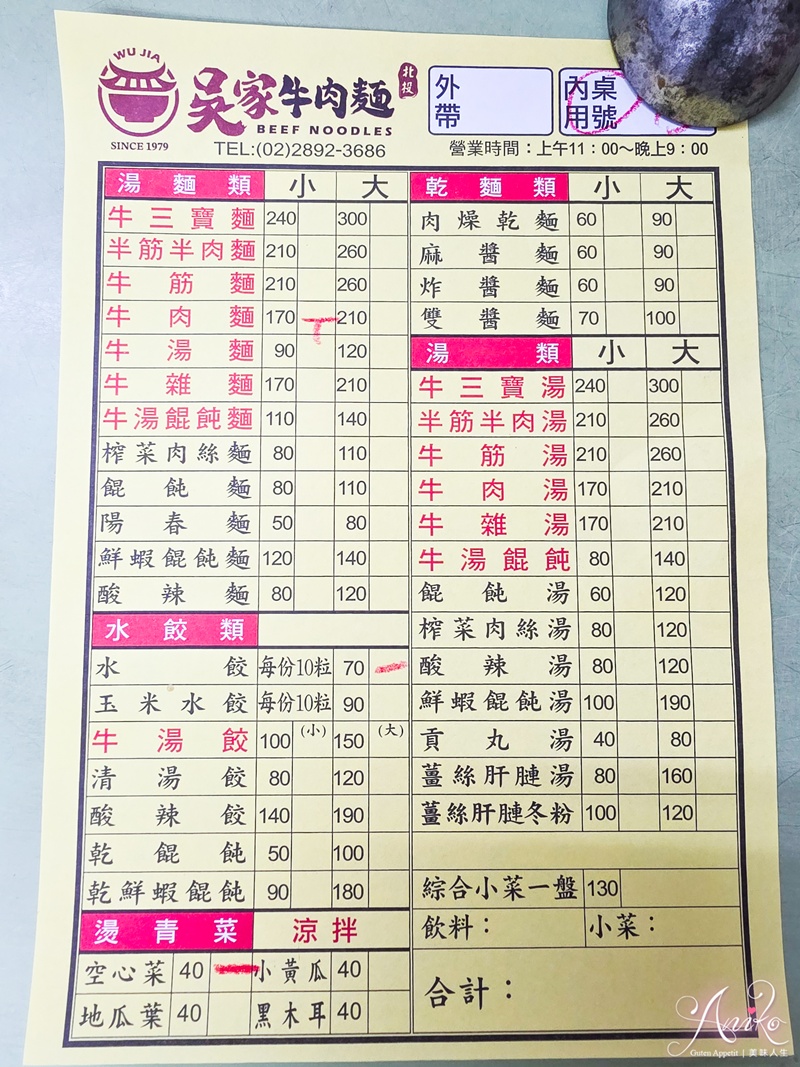 WU JIA
吳家牛肉麵 北投
BEEF NOODLES
SINCE 1979
TEL:(02)2892-3686
外帶
內用 桌號
營業時間：上午11：00～晚上9：00
湯麵類 小 大
牛三寶麵 240 300
半筋半肉麵 210 260
牛筋麵 210 260
牛肉麵 170 210
牛湯麵 90 120
牛雜麵 170 210
牛湯餛飩麵 110 140
榨菜肉絲麵 80 110
餛飩麵 80 110
陽春麵 50 80
鮮蝦餛飩麵 120 140
酸辣麵 80 120
水餃類
水餃 每份10粒 70
玉米水餃 每份10粒 90
牛湯餃 100 (小) 150 (大)
清湯餃 80 120
酸辣餃 140 190
乾餛飩 50 100
乾鮮蝦餛飩 90 180
燙青菜 涼拌
空心菜 40 小黃瓜 40
地瓜葉 40 黑木耳 40
乾麵類 小 大
肉燥乾麵 60 90
麻醬麵 60 90
炸醬麵 60 90
雙醬麵 70 100
湯類 小 大
牛三寶湯 240 300
半筋半肉湯 210 260
牛筋湯 210 260
牛肉湯 170 210
牛雜湯 170 210
牛湯餛飩 80 140
餛飩湯 60 120
榨菜肉絲湯 80 120
酸辣湯 80 120
鮮蝦餛飩湯 100 190
貢丸湯 40 80
薑絲肝腱湯 80 160
薑絲肝腱冬粉 100 120
綜合小菜一盤 130
飲料： 小菜：
合計：
Aniko
Guten Appetit | 美味人生